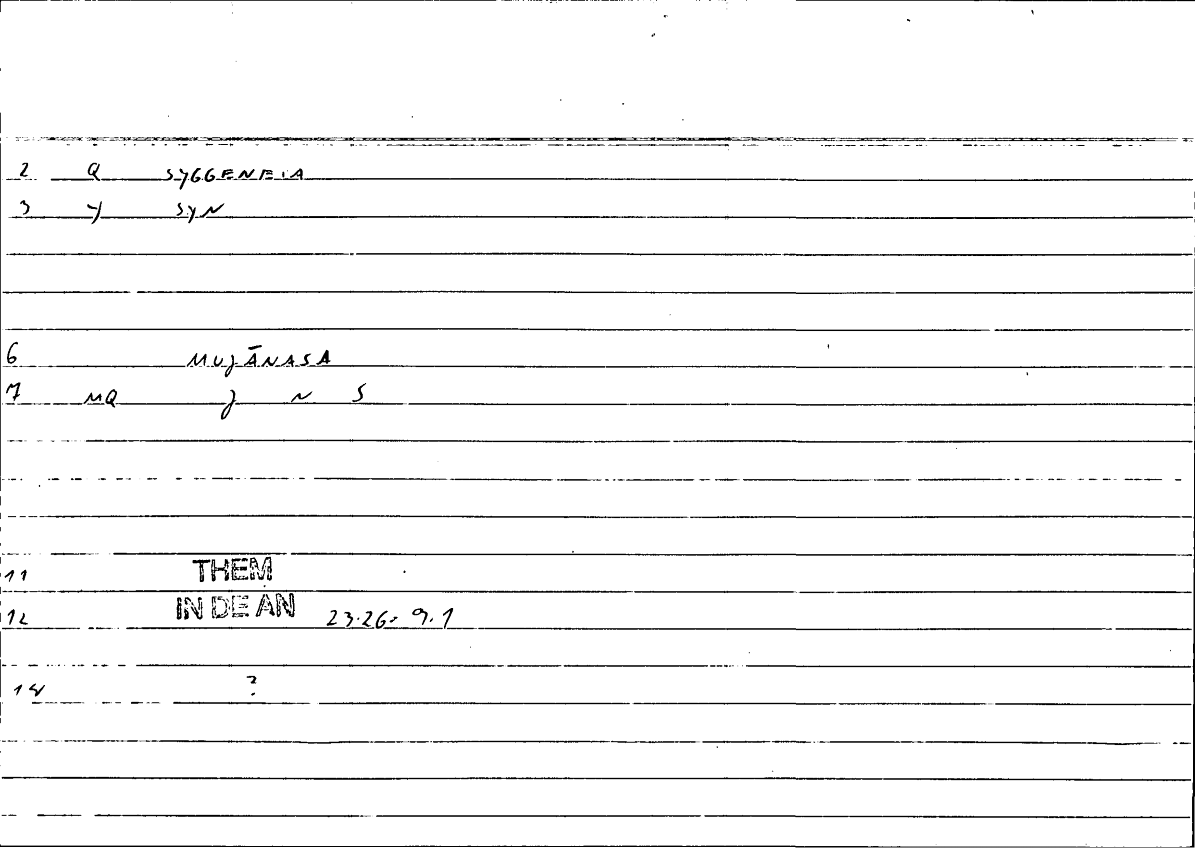 2 Q SYGGENEIA
3 Y SYN
6 MUJĀNASA
7 MQ J N S
11 THEM
12 IN DE AN 23.26-9.1
14 ?